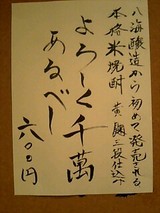 八海醸造から初めて発売される
本格米焼酎 黄麹三段仕込み
よろしく千萬
あるべし
六〇〇円